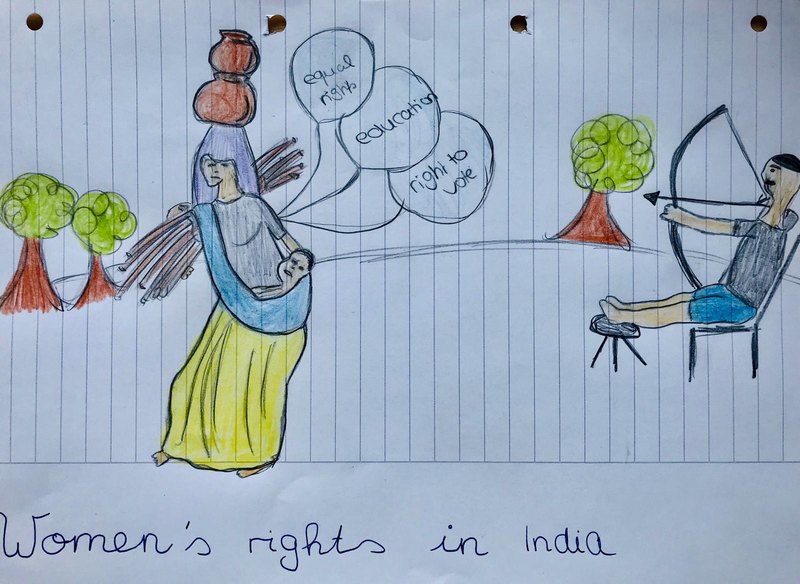 equal
rights
education
right to
vote
Women's rights in India